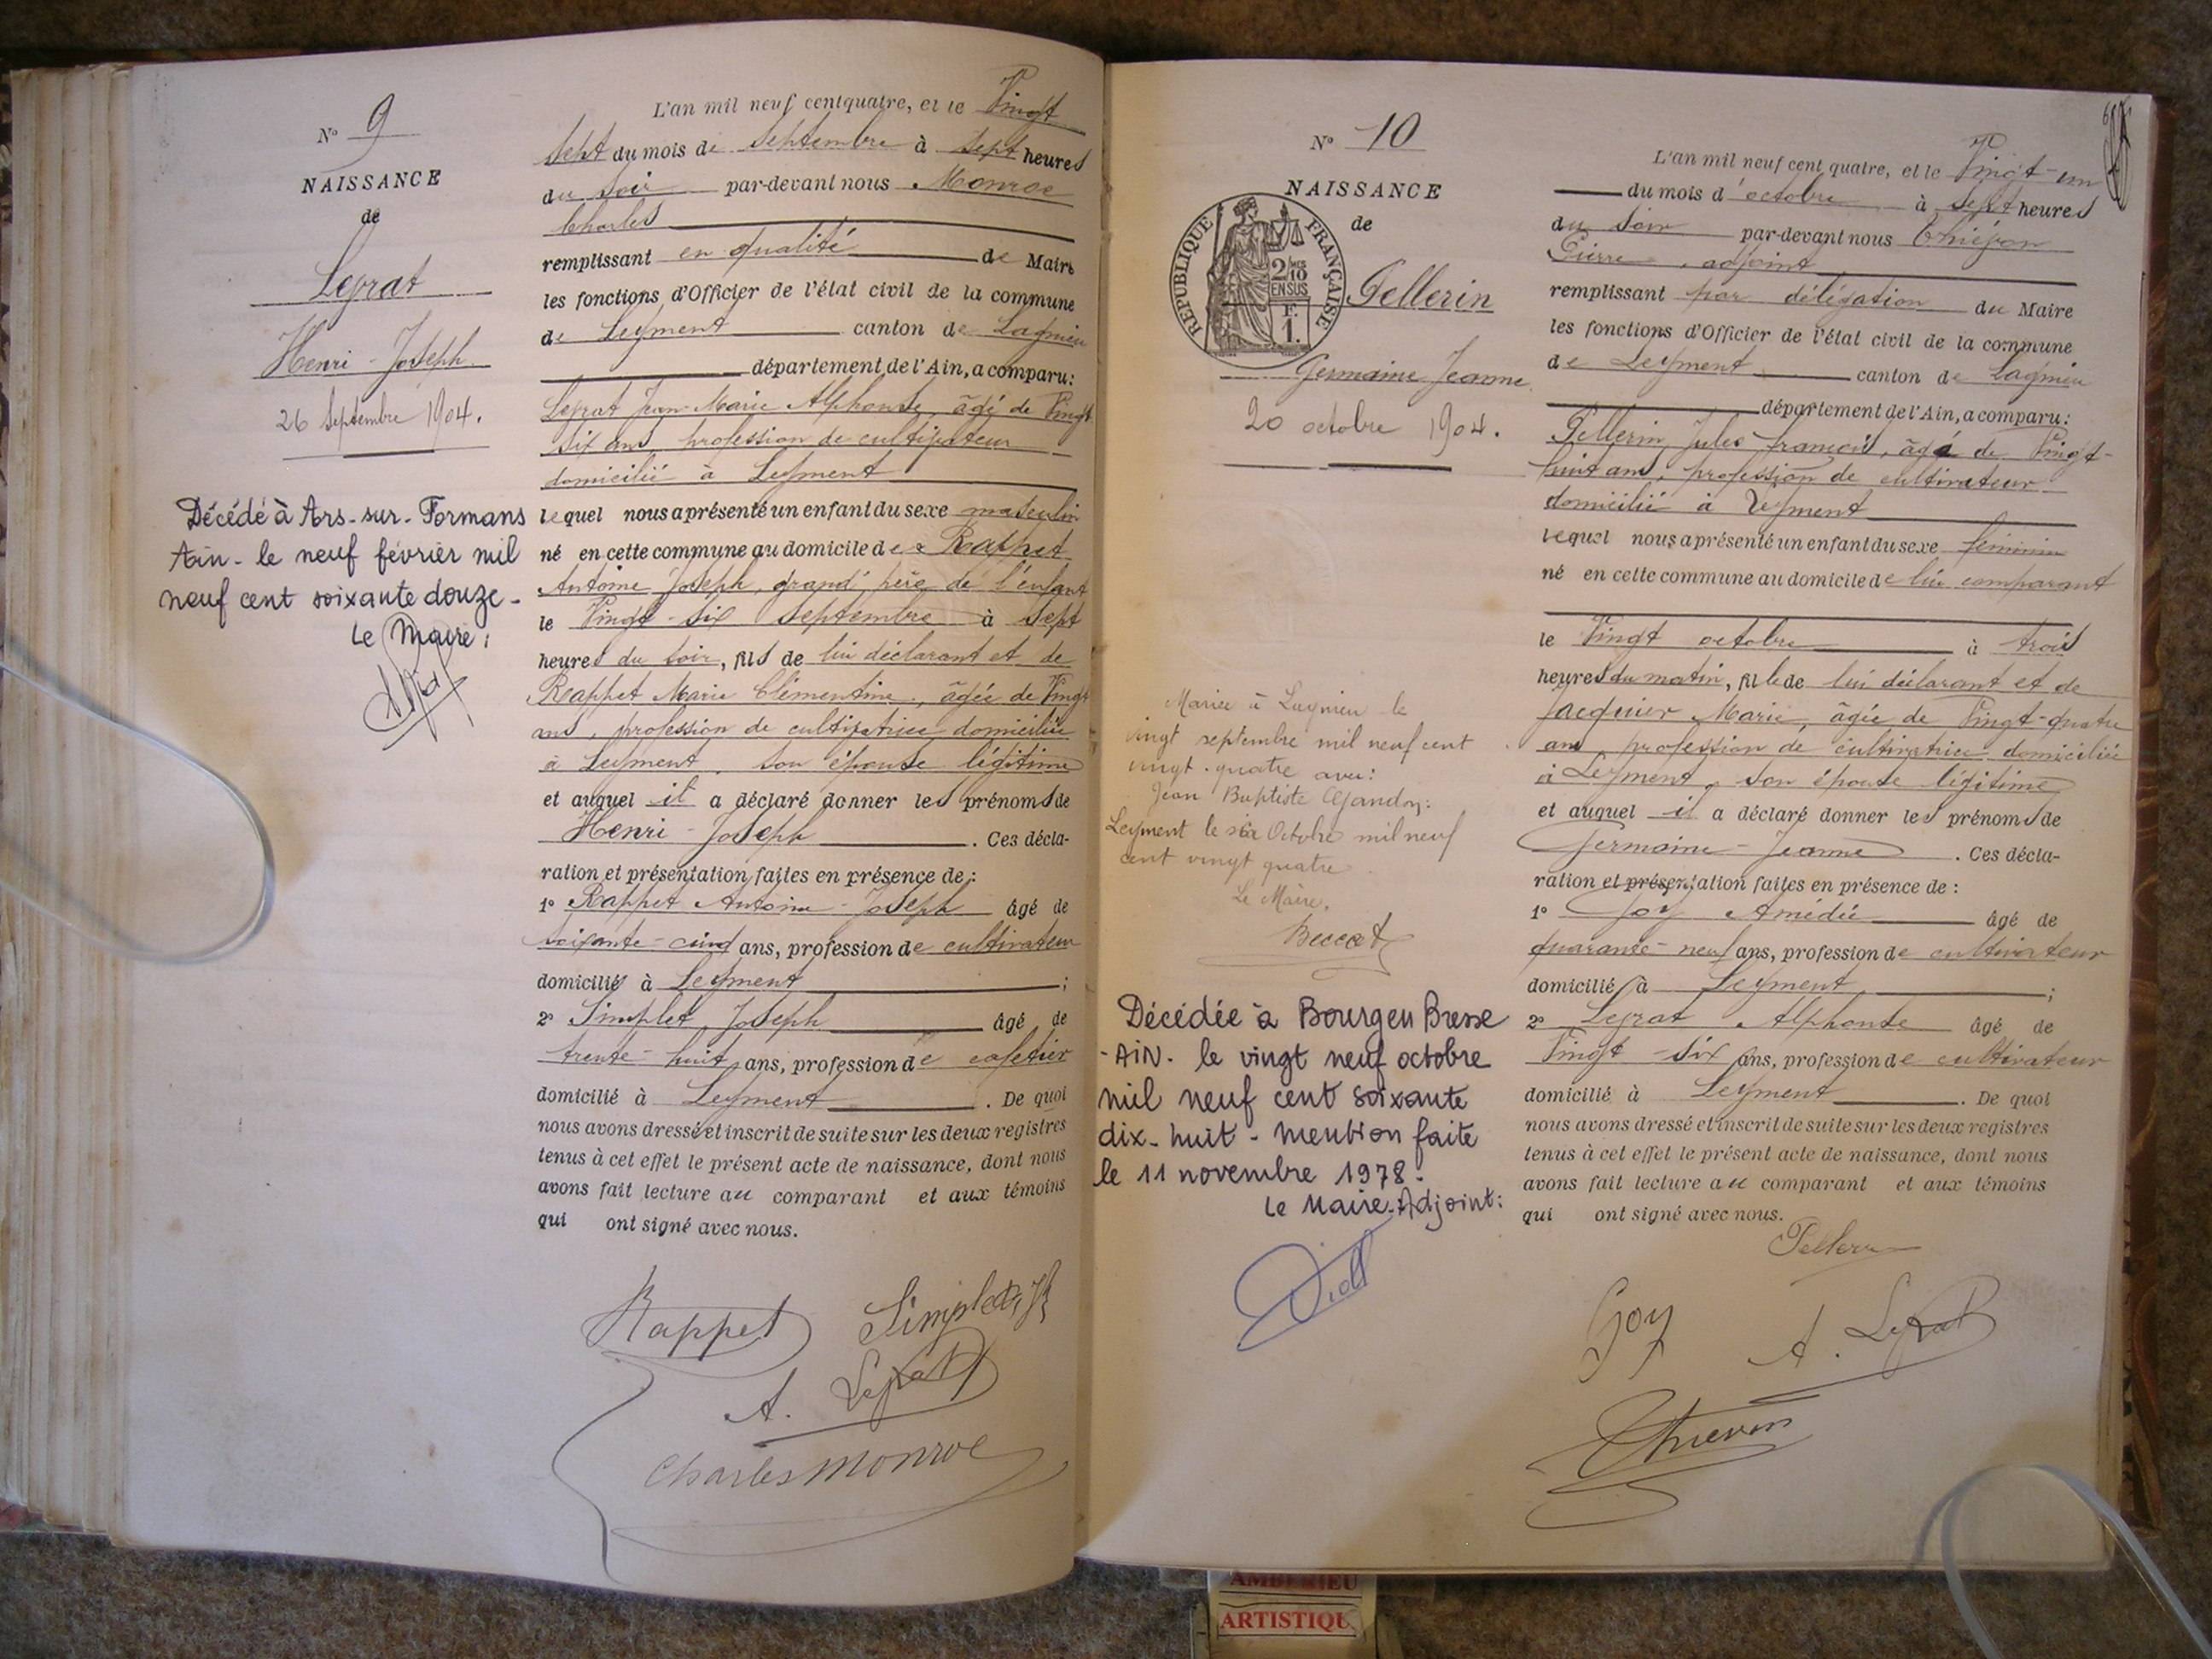 N° 9
NAISSANCE
de
Leyrat
Henri - Joseph
26 Septembre 1904.
Décédé à Ars-sur-Formans
Ain - le neuf février mil
neuf cent soixante douze -
Le Maire :
L'an mil neuf cent quatre, et le Vingt
sept du mois de septembre à sept heures
du soir par-devant nous Monroe
Charles
remplissant en qualité de Maire
les fonctions d'Officier de l'état civil de la commune
de Leyment canton de Lagnieu
département de l'Ain, a comparu :
Leyrat Jean-Marie Alphonse, âgé de Vingt
six ans, profession de cultivateur
domicilié à Leyment
lequel nous a présenté un enfant du sexe masculin
né en cette commune au domicile de Rappet
Antoine Joseph, grand père de l'enfant
le Vingt-six septembre à sept
heures du soir, fils de lui déclarant et de
Rappet Marie Clémentine, âgée de Vingt
ans, profession de cultivatrice domiciliée
à Leyment, son épouse légitime
et auquel il a déclaré donner les prénoms de
Henri - Joseph. Ces décla-
ration et présentation faites en présence de :
1° Rappet Antoine - Joseph âgé de
soixante-cinq ans, profession de cultivateur
domicilié à Leyment ;
2° Simplet Joseph âgé de
trente-huit ans, profession de cafetier
domicilié à Leyment. De quoi
nous avons dressé et inscrit de suite sur les deux registres
tenus à cet effet le présent acte de naissance, dont nous
avons fait lecture au comparant et aux témoins
qui ont signé avec nous.
Rappet Simplet
A. Leyrat
Charles Monroe
N° 10
NAISSANCE
de
RÉPUBLIQUE FRANÇAISE
2/10 EN SUS
F. 1.
Pellerin
Germaine Jeanne
20 octobre 1904.
Mariée à Lagnieu le
vingt septembre mil neuf cent
vingt-quatre avec :
Jean Baptiste
Leyment le six Octobre mil neuf
cent vingt quatre
Le Maire,
Beccat
Décédée à Bourg en Bresse
- AIN - le vingt neuf octobre
mil neuf cent soixante
dix-huit - mention faite
le 11 novembre 1978.
Le Maire-Adjoint :
L'an mil neuf cent quatre, et le Vingt-un
du mois d'octobre à sept heures
du soir par-devant nous Thiévon
Pierre, adjoint
remplissant par délégation du Maire
les fonctions d'Officier de l'état civil de la commune
de Leyment canton de Lagnieu
département de l'Ain, a comparu :
Pellerin Jules François, âgé de Vingt-
huit ans, profession de cultivateur
domicilié à Leyment
lequel nous a présenté un enfant du sexe féminin
né en cette commune au domicile de lui comparant
le Vingt octobre à trois
heures du matin, fille de lui déclarant et de
Jacquier Marie, âgée de Vingt-quatre
ans, profession de cultivatrice domiciliée
à Leyment, son épouse légitime
et auquel il a déclaré donner les prénoms de
Germaine - Jeanne. Ces décla-
ration et présentation faites en présence de :
1° Goy Amédée âgé de
quarante-neuf ans, profession de cultivateur
domicilié à Leyment ;
2° Leyrat Alphonse âgé de
Vingt-six ans, profession de cultivateur
domicilié à Leyment. De quoi
nous avons dressé et inscrit de suite sur les deux registres
tenus à cet effet le présent acte de naissance, dont nous
avons fait lecture au comparant et aux témoins
qui ont signé avec nous.
Pellerin
Goy A. Leyrat
Thiévon
AMBERIEU
ARTISTIQUE